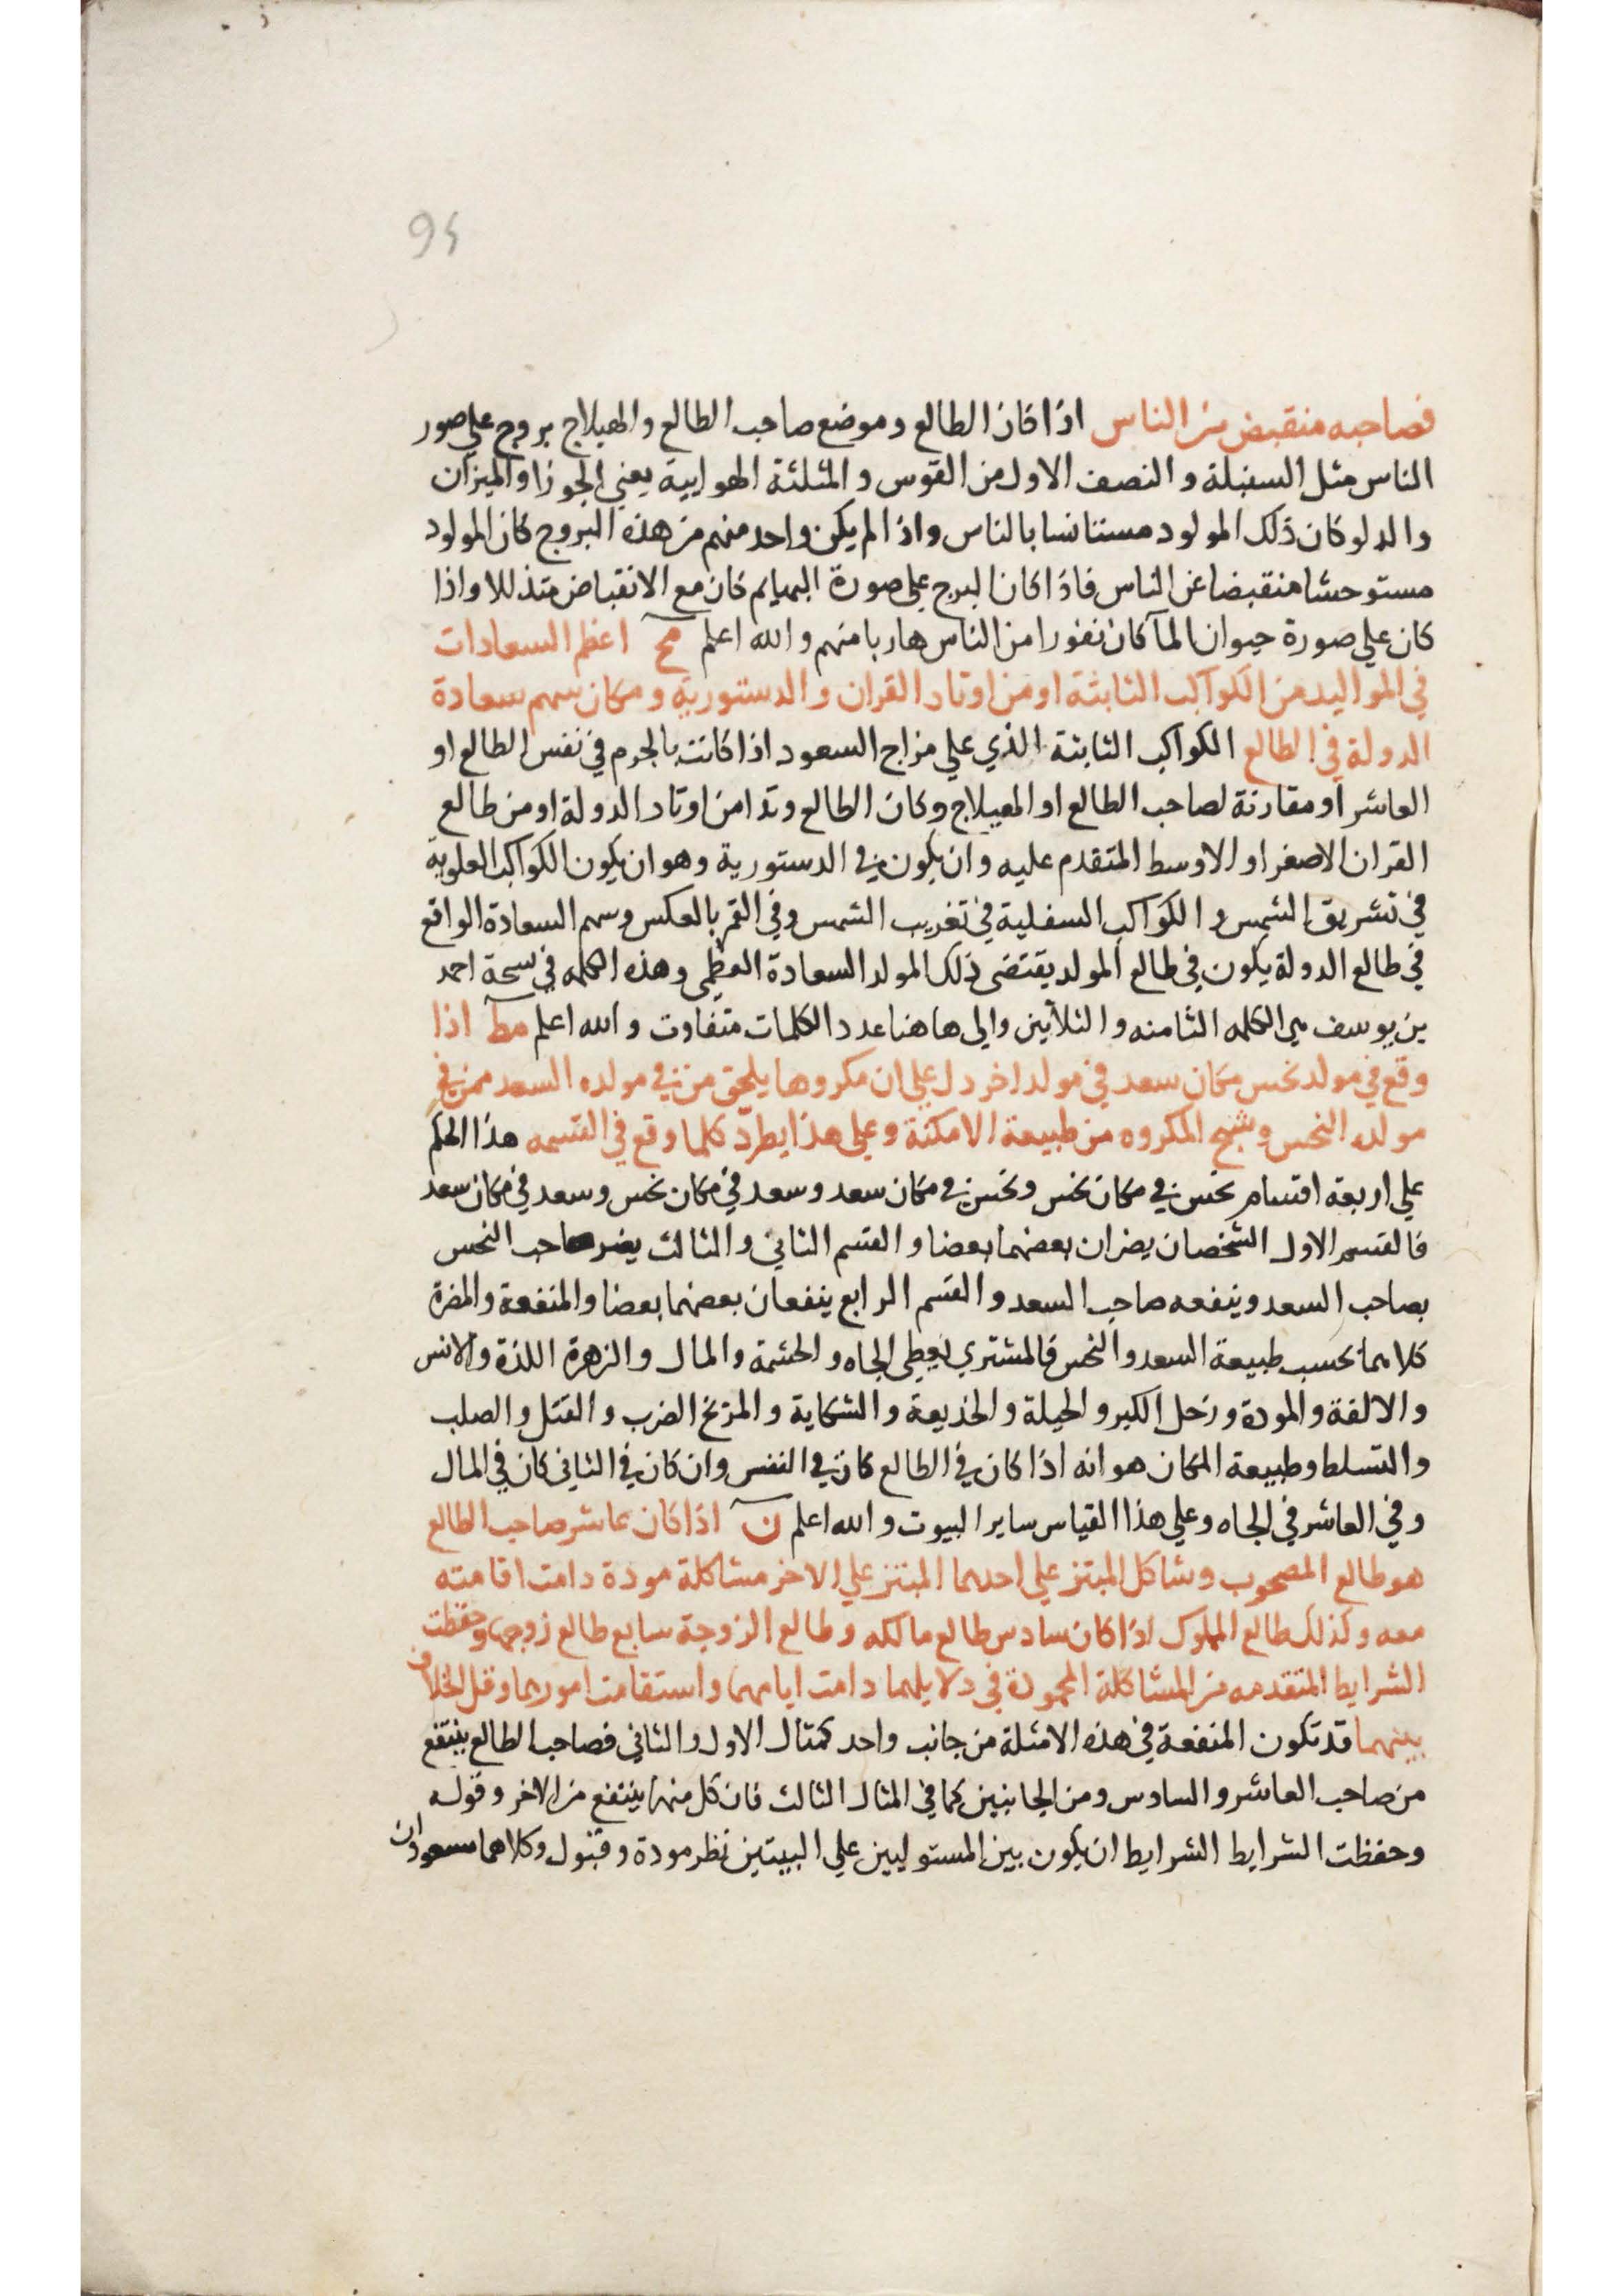 96
فصاحبه منقبض من الناس اذا كان الطالع وموضع صاحب الطالع والهيلاج بروج علي صور
الناس مثل السنبلة والنصف الاول من القوس والمثلثة الهوايية يعني الجوزا والميزان
والدلو كان ذلك المولود مستانسا بالناس واذا لم يكن واحد منهم من هذه البروج كان المولود
مستوحشا منقبضا عن الناس فاذا كان البرج علي صورة البهايم كان مع الانقباض متذللا واذا
كان علي صورة حيوان الما كان نفورا من الناس هاربا منهم والله اعلم مح اعظم السعادات
في المواليد من الكواكب الثابتة او من اوتاد القران والدستورية ومكان سهم سعادة
الدولة في الطالع الكواكب الثابتة الذي علي مزاج السعود اذا كانت بالجرم في نفس الطالع او
العاشر او مقارنة لصاحب الطالع او الهيلاج وكان الطالع وتدا من اوتاد الدولة او من طالع
القران الاصغر او الاوسط المتقدم عليه وان يكون في الدستورية وهو ان يكون الكواكب العلوية
في تشريق الشمس والكواكب السفلية في تغريب الشمس وفي القمر بالعكس وسهم السعادة الواقع
في طالع الدولة يكون في طالع المولد يقتضى ذلك المولد السعادة العظمى وهذه الكلمه في نسخة احمد
بن يوسف هي الكلمه الثامنه والثلاثين والي هاهنا عدد الكلمات متفاوت والله اعلم مط اذا
وقع في مولد نحس مكان سعد في مولد اخر دل علي ان مكروها يلحق من في مولده السعد ممن في
مولده النحس المكروه من طبيعة الامكنة وعلي هذا يطرد كلما وقع في القسمه هذا الحكم
علي اربعة اقسام نحس في مكان نحس ونحس في مكان سعد وسعد في مكان نحس وسعد في مكان سعد
فالقسم الاول الشخصان يضران بعضهما بعضا والقسم الثاني والثالث يضر صاحب النحس
بصاحب السعد وينفعه صاحب السعد والقسم الرابع ينفعان بعضهما بعضا والمنفعة والمضرة
كلاهما بحسب طبيعة السعد والنحس فالمشتري يعطي الجاه والحشمة والمال والزهرة اللذة والانس
والالفة والمودة وزحل الكبر والحيلة والخذيعة والشكاية والمريخ الضرب والقتل والصلب
والتسلط وطبيعة المكان هو انه اذا كان في الطالع كان في النفس وان كان في الثاني كان في المال
وفي العاشر في الجاه وعلي هذا القياس ساير البيوت والله اعلم ن اذا كان عاشر صاحب الطالع
هو طالع المصحوب وشاكل المبتز علي احدهما المبتز علي الاخر مشاكلة مودة دامت اقامته
معه وكذلك طالع المملوك اذا كان سادس طالع مالكه وطالع الزوجة سابع طالع زوجها وحفظت
الشرايط المتقدمه من المشاكلة المحمودة في دلايلهما دامت ايامهما واستقامت امورهما وقل الخلاف
بينهما قد تكون المنفعة في هذه الامثلة من جانب واحد كمثال الاول والثاني فصاحب الطالع ينتفع
من صاحب العاشر والسادس ومن الجانبين كما في المثال الثالث فان كل منهما ينتفع من الاخر وقوله
وحفظت الشرايط الشرايط ان يكون بين المستوليين علي البيتين نظر مودة وقبول وكلاهما مسعودان